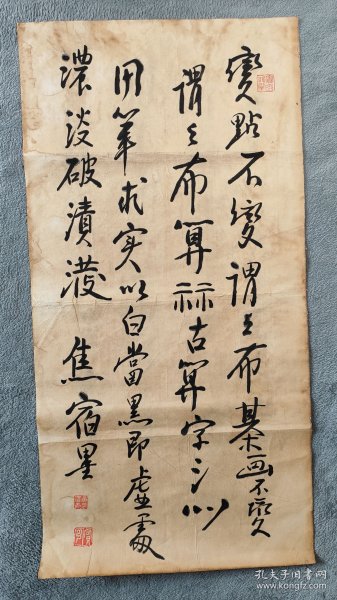 點不變謂之布棊画不變
謂之布算祘古算字以
用筆求实以白當黑即虛處
濃淡破漬潑焦宿墨
孔夫子旧书网
www.kongfz.com